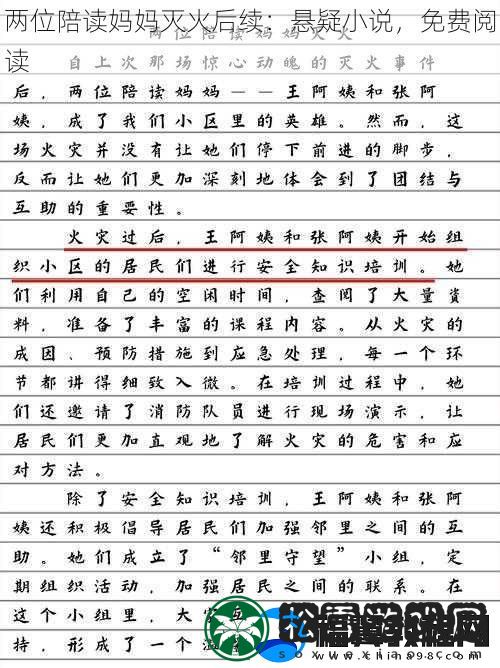 两位陪读妈妈灭火后续：悬疑小说，免费阅
读
两位陪读妈妈灭火
自上次那场惊心动魄的灭火事件
后，两位陪读妈妈——王阿姨和张阿
姨，成了我们小区里的英雄。然而，这
场火灾并没有让她们停下前进的脚步，
反而让她们更加深刻地体会到了团结与
互助的重要性。
火灾过后，王阿姨和张阿姨开始组
织小区的居民们进行安全知识培训。她
们利用自己的空闲时间，查阅了大量资
料，准备了丰富的课程内容。从火灾的
成因、预防措施到应急处理，每一个环
节都讲得细致入微。在培训过程中，她
们还邀请了消防队员进行现场演示，让
居民们更加直观地了解火灾的危害和应
对方法。
除了安全知识培训，王阿姨和张阿
姨还积极倡导居民们加强邻里之间的互
助。她们成立了“邻里守望”小组，定
期组织活动，加强居民之间的联系。在
这个小组里，大家
持，形成了一个温